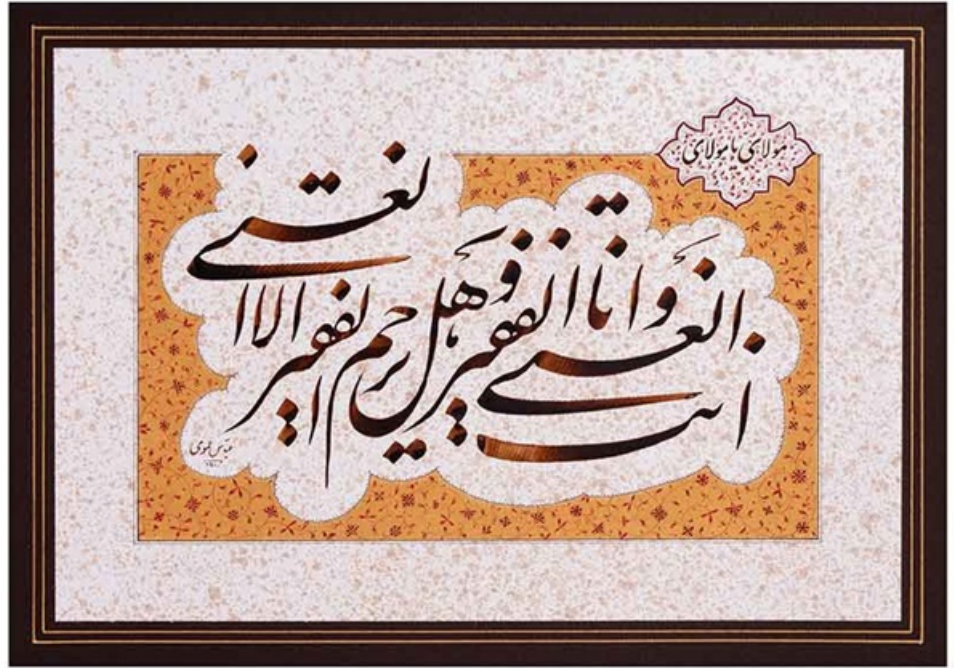 مولای یا مولای
انت الغنی و انا الفقیر و هل یرحم الفقیر الا الغنی